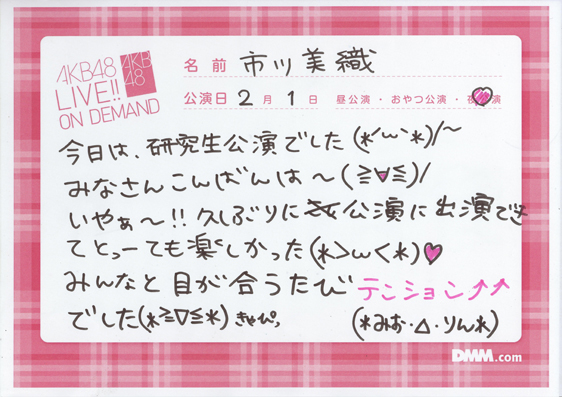 AKB48
LIVE!!
ON DEMAND
AKB
48
名前 市川美織
公演日 2月1日 昼公演・おやつ公演・夜公演
今日は、研究生公演でした(*´ω`*)/~
みなさんこんばんは～(≧∀≦)/
いやぁ～!! 久しぶりに公演に出演でき
てとっーても楽しかった(*>ω<*)♥
みんなと目が合うたびテンション↑↑
でした(*≧∇≦*)きゃぴっ
(*みお・Δ・りん*)
DMM.com